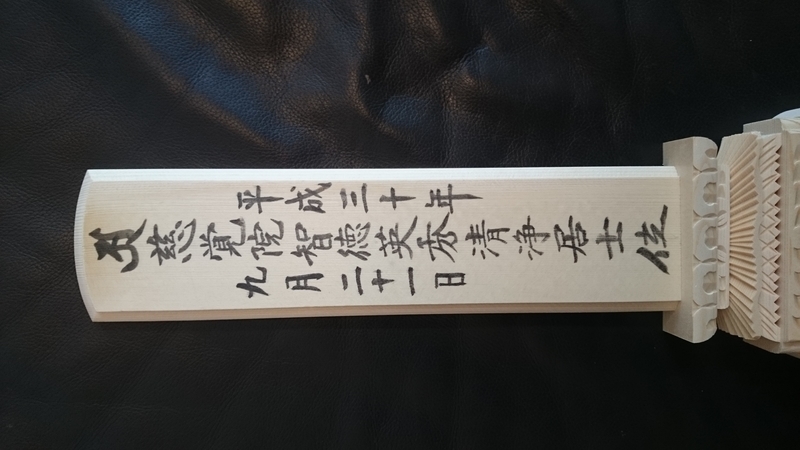 平成三十年
慈覚院智徳英彦清浄居士位
九月二十一日